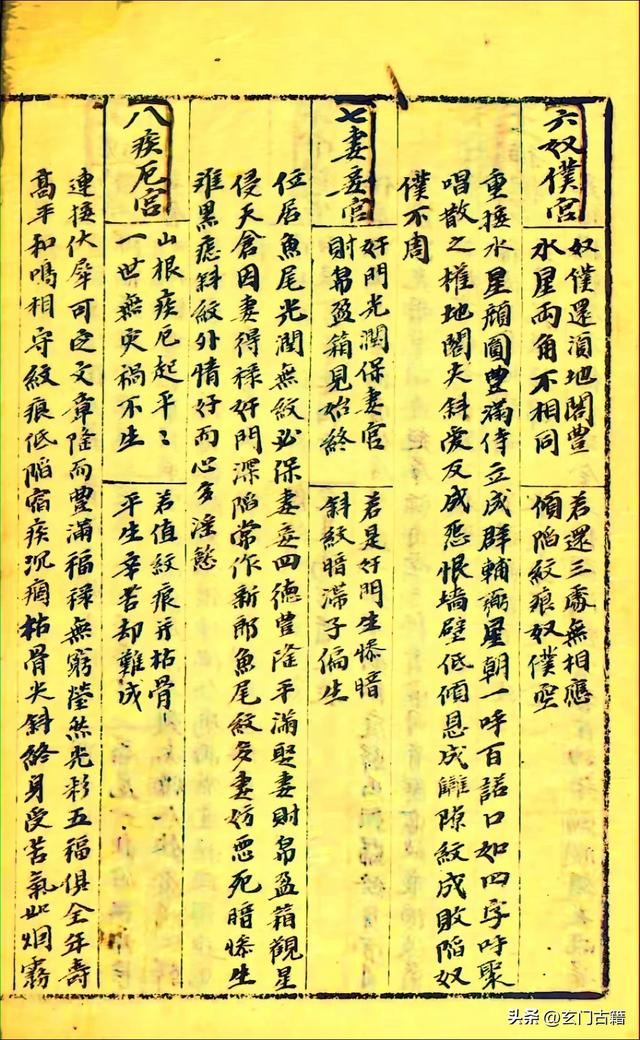 六奴僕宮
奴僕還湏地閣豊
水星両角不相同
若還三處無相應
傾陷紋痕奴僕空
重接水星頦圓豊滿侍立成群輔弼星朝一呼百諾口如四字呼聚
唱散之權地閣尖斜受反成恩恨墻壁低傾恩成讎隙紋成敗陷奴
僕不周
七妻妾宮
奸門光潤保妻宮
財帛盈箱見始終
若是奸門生慘暗
斜紋暗滯子偏生
位居魚尾光潤無紋必保妻妾四德豊隆平滿娶妻財帛盈箱觀星
侵天倉因妻得祿奸門深陷常作新郎魚尾紋多妻妨惡死暗慘生
难黑痣斜紋外情好而心多淫慾
八疾厄宮
山根疾厄起平〻
一世無灾禍不生
若值紋痕并枯骨
平生辛苦却難成
連接伏犀可定文章隆而豊滿福祿無窮瑩然光彩五福俱全年壽
高平和鳴相守紋痕低陷宿疾沉痾枯骨尖斜終身受苦氣如烟霧
头条 @玄门古籍